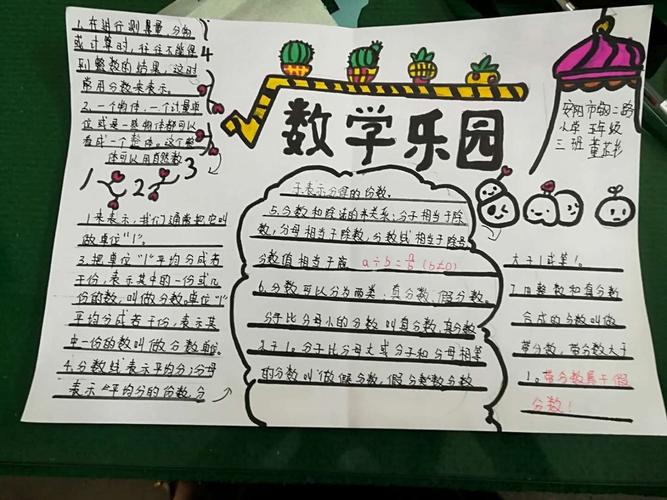 数学乐园
安阳市钢二路
小学 五年级
三班 董芷彤
1.在进行测量,分物
或计算时,往往不能得
到整数的结果,这时
常用分数来表示。
2.一个物体,一个计量单
位或是一些物体都可以
看成一个整体。这个整
体可以用自然数
1 2 3 4
1来表示,我们通常把它叫
做单位"1"。
3.把单位"1"平均分成若
干份,表示其中的一份或几
份的数,叫做分数。单位"1"
平均分成若干份,表示其
中一份的数叫做分数单位。
4.分数线表示平均分;分母
表示"平均分的份数,分
子表示分得的份数。
5.分数和除法的本关系:分子相当于除
数,分母相当于除数,分数线相当于除号
分数值相当于商 a÷b=a/b (b≠0)
6.分数可以分为两类:真分数,假分数。
分子比分母小的分数叫真分数,真分数
之于1。分子比分母大或分子和分母相等
的分数叫做假分数,假分数分数
大于1或等1。
7.由整数和真分数
合成的分数叫做
带分数,带分数大于
1。带分数属于假
分数!